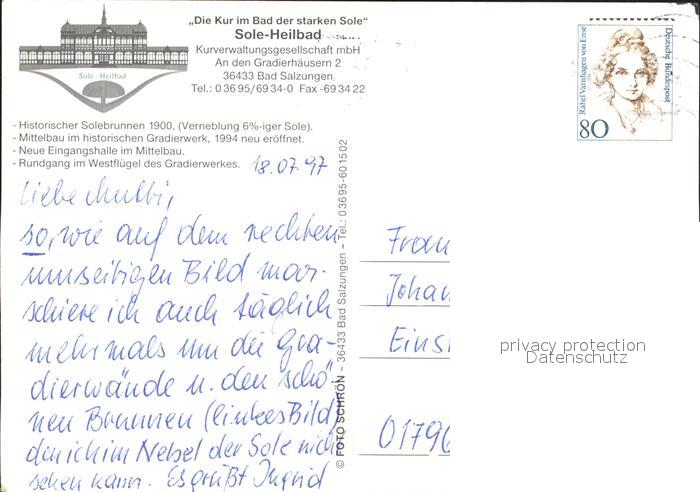 „Die Kur im Bad der starken Sole“
Sole-Heilbad
Kurverwaltungsgesellschaft mbH
An den Gradierhäusern 2
36433 Bad Salzungen
Tel.: 0 36 95/69 34-0 Fax -69 34 22
Sole - Heilbad
- Historischer Solebrunnen 1900, (Verneblung 6%-iger Sole).
- Mittelbau im historischen Gradierwerk, 1994 neu eröffnet.
- Neue Eingangshalle im Mittelbau.
- Rundgang im Westflügel des Gradierwerkes.
18.07.97
Liebe Mutti,
so, wie auf dem rechten
umseitigen Bild mar-
schiere ich auch täglich
mehrmals um die Gra-
dierwände u. den schö-
nen Brunnen (linkes Bild)
den ich im Nebel der Sole nicht
sehen kann. Es grüßt Ingrid
© FOTO SCHRÖN – 36433 Bad Salzungen – Tel.: 03695-601502
Rahel Varnhagen von Ense
Deutsche Bundespost
80
Frau
Johan
Eins
0179
privacy protection
Datenschutz